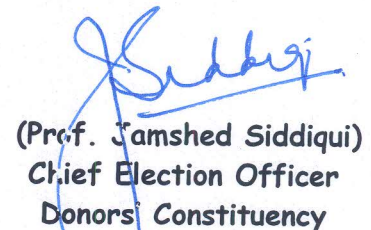 J Siddiqi
(Prof. Jamshed Siddiqui)
Chief Election Officer
Donors' Constituency